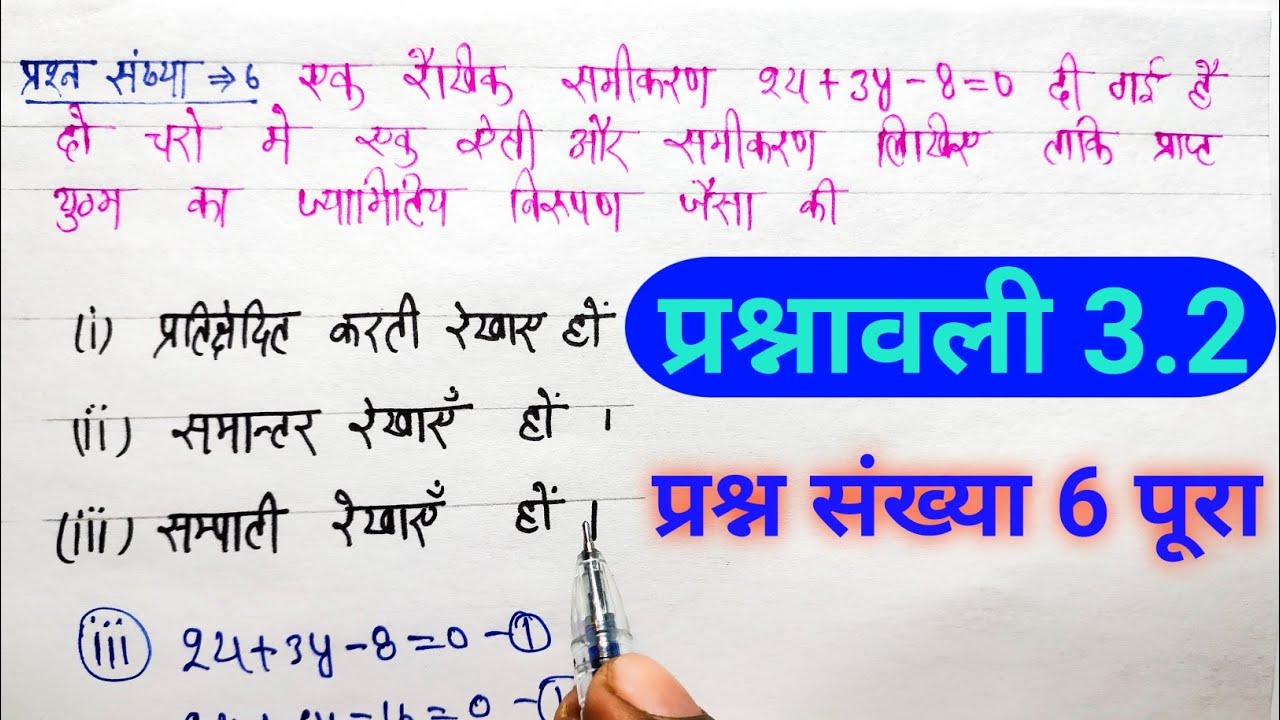 प्रश्न संख्या ⇒ 6 एक रैखिक समीकरण 2x+3y-8=0 दी गई है
दो चरो मे एक ऐसी और समीकरण लिखिए ताकि प्राप्त
युग्म का ज्यामितिय निरुपण जैसा की
प्रश्नावली 3.2
(i) प्रतिछेदित करती रेखाए हों
(ii) समान्तर रेखाएँ हों ।
प्रश्न संख्या 6 पूरा
(iii) सम्पाती रेखाएँ हों ।
(iii) 2x+3y-8=0 -①